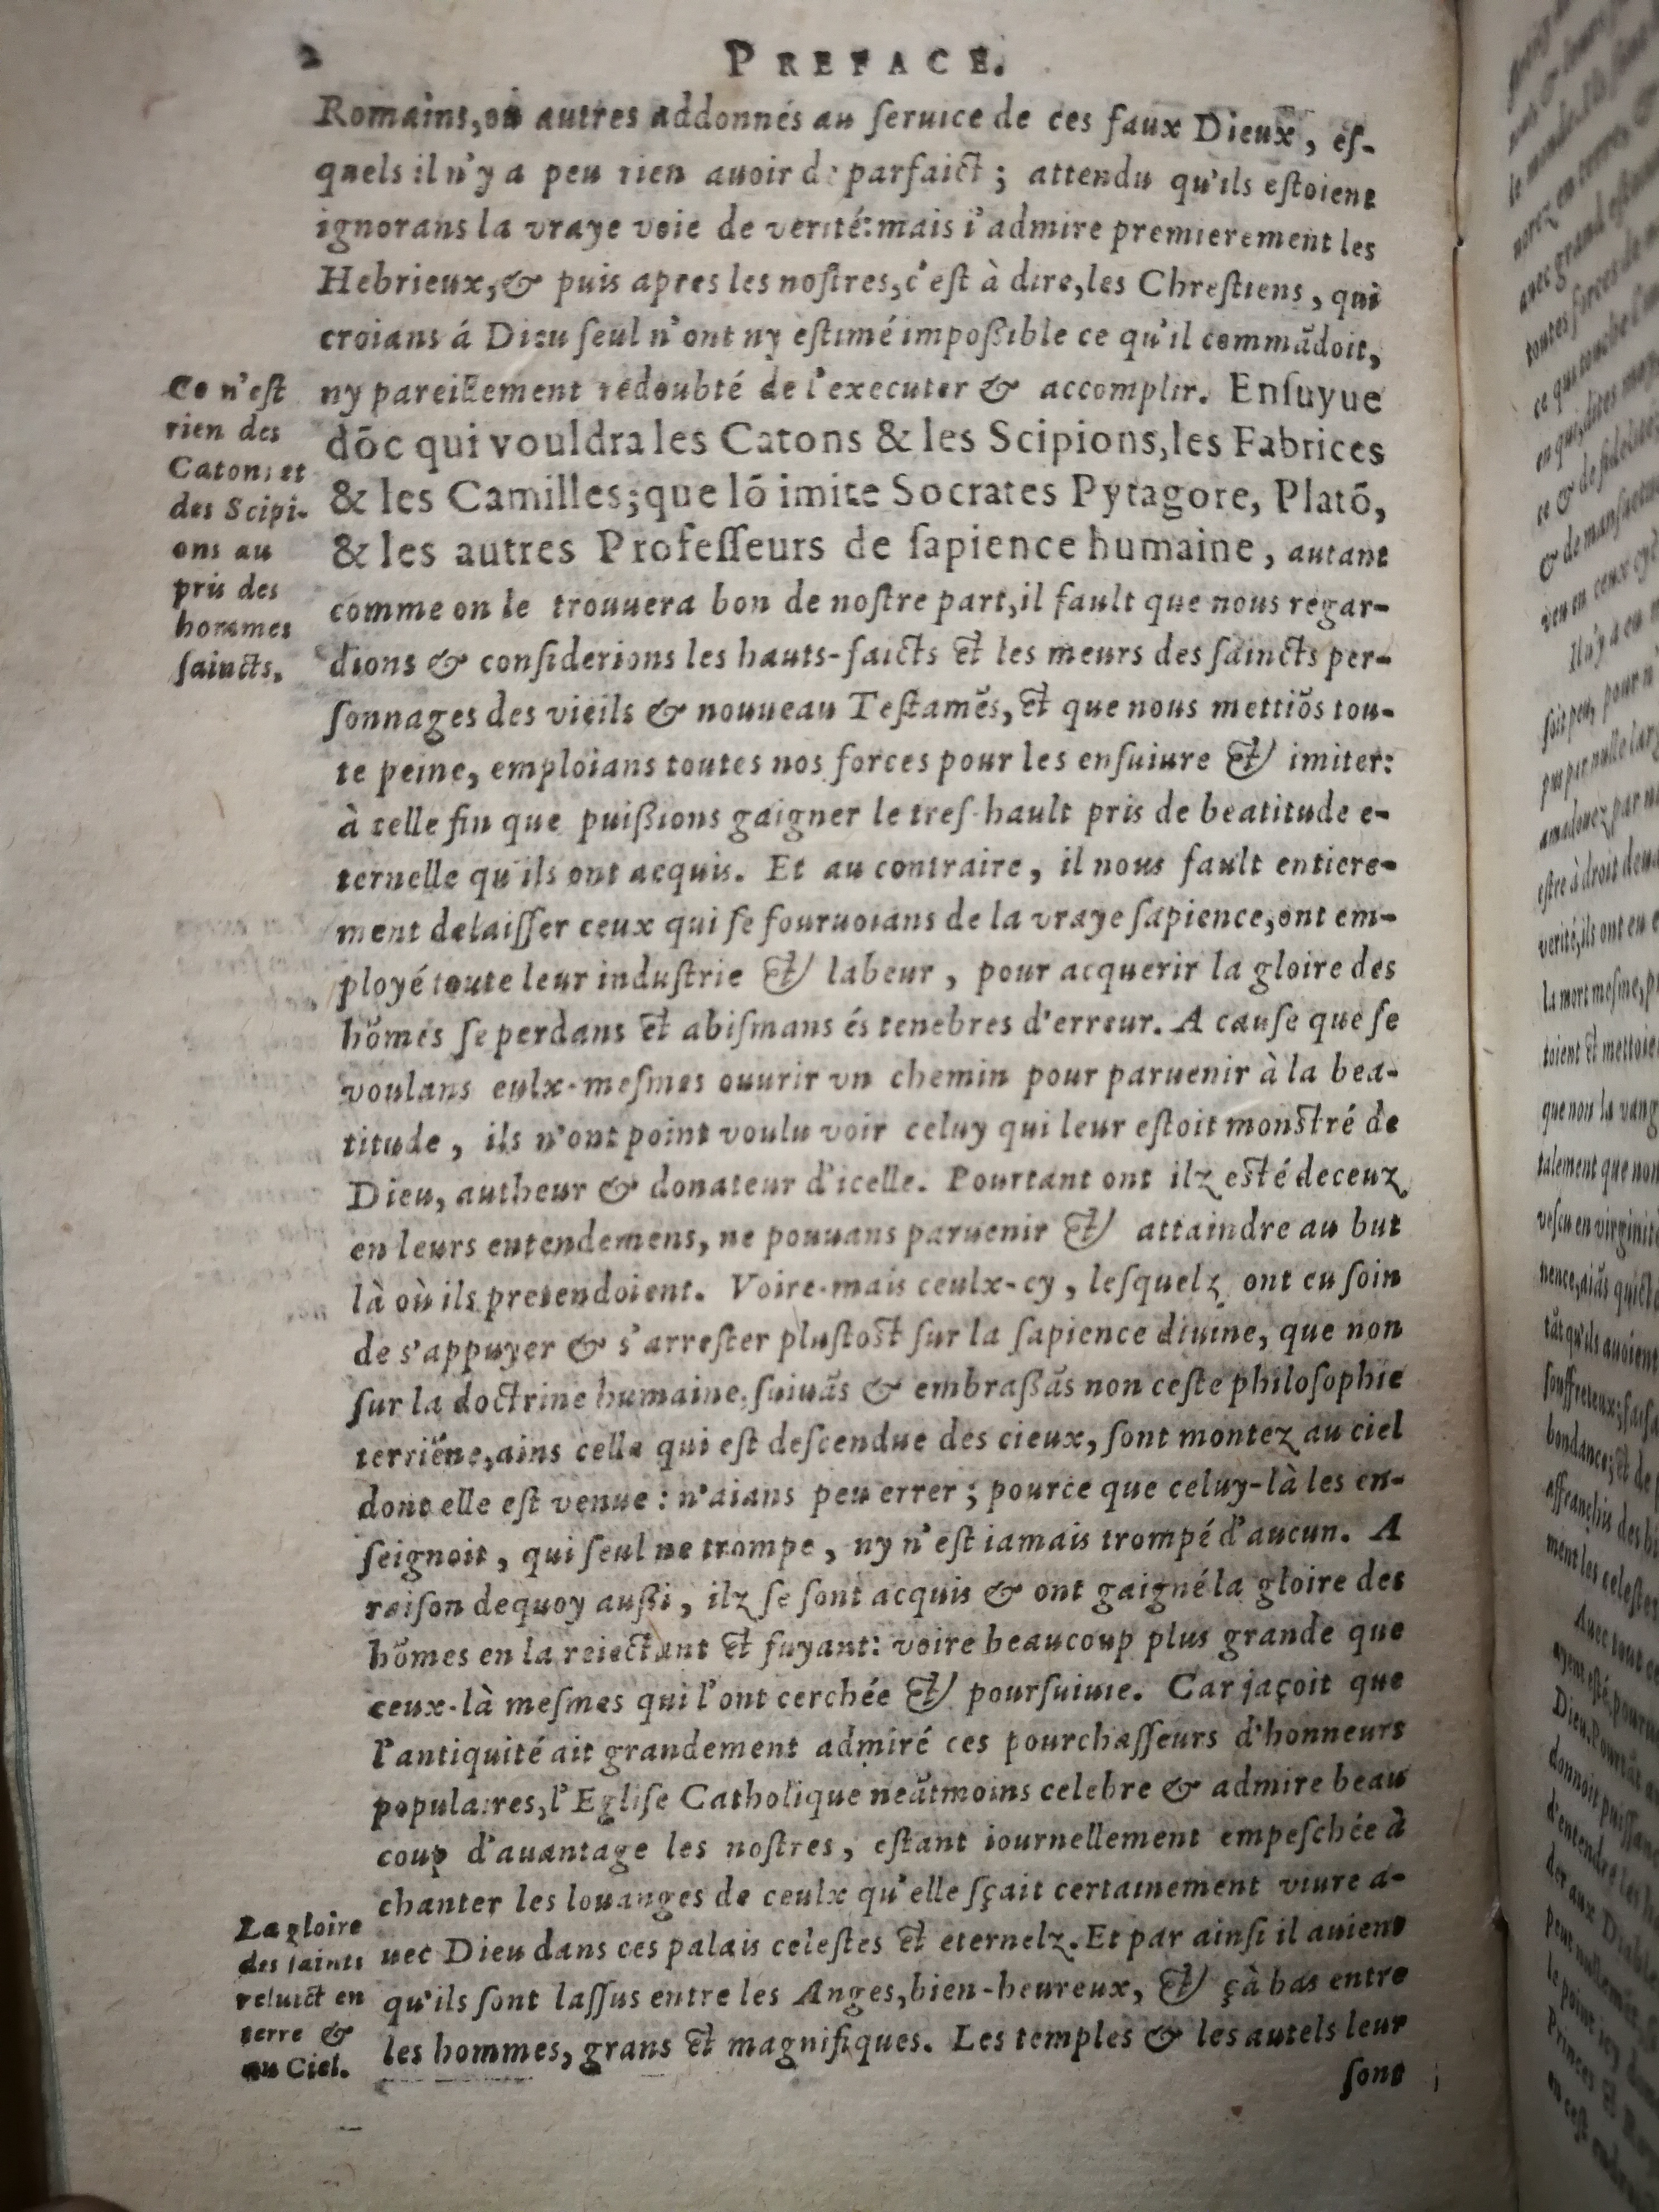 2
PREFACE.
Romains, ou autres addonnés au ſeruice de ces faux Dieux, eſ-
quels il n'y a peu rien auoir de parfaict; attendu qu'ils eſtoient
ignorans la vraye voie de verité: mais i'admire premierement les
Hebrieux, & puis apres les noſtres, c'eſt à dire, les Chreſtiens, qui
croians á Dieu ſeul n'ont ny eſtimé impoßible ce qu'il commãdoit,
ny pareillement redoubté de l'executer & accomplir. Enſuyue
dõc qui vouldra les Catons & les Scipions, les Fabrices
& les Camilles; que lõ imite Socrates Pytagore, Platõ,
& les autres Profeſſeurs de ſapience humaine, autant
comme on le trouuera bon de noſtre part, il fault que nous regar-
dions & conſiderions les hauts-faicts et les meurs des ſaincts per-
ſonnages des vieils & nouueau Teſtamẽs, et que nous mettiõs tou-
te peine, emploians toutes nos forces pour les enſuiure et imiter:
à telle fin que puißions gaigner le treſ-hault pris de beatitude e-
ternelle qu'ils ont acquis. Et au contraire, il nous fault entiere-
ment delaiſſer ceux qui ſe fouruoians de la vraye ſapience, ont em-
ployé toute leur induſtrie et labeur, pour acquerir la gloire des
hõmes ſe perdans et abiſmans és tenebres d'erreur. A cauſe que ſe
voulans eulx-meſmes ouurir vn chemin pour paruenir à la bea-
titude, ils n'ont point voulu voir celuy qui leur eſtoit monſtré de
Dieu, autheur & donateur d'icelle. Pourtant ont ilz eſté deceuz
en leurs entendemens, ne pouuans paruenir et attaindre au but
là où ils pretendoient. Voire-mais ceulx-cy, leſquelz ont eu ſoin
de s'appuyer & s'arreſter pluſtoſt ſur la ſapience diuine, que non
ſur la doctrine humaine, ſuiuãs & embraßãs non ceſte philoſophie
terriẽne, ains celle qui eſt deſcendue des cieux, ſont montez au ciel
dont elle eſt venue: n'aians peu errer; pource que celuy-là les en-
ſeignoit, qui ſeul ne trompe, ny n'eſt iamais trompé d'aucun. A
raiſon dequoy außi, ilz ſe ſont acquis & ont gaigné la gloire des
hõmes en la reiectant et fuyant: voire beaucoup plus grande que
ceux-là meſmes qui l'ont cerchée et pourſuiuie. Car jaçoit que
l'antiquité ait grandement admiré ces pourchaſſeurs d'honneurs
populaires, l'Egliſe Catholique neãtmoins celebre & admire beau
coup d'auantage les noſtres, eſtant iournellement empeſchée à
chanter les louanges de ceulx qu'elle ſçait certainement viure a-
uec Dieu dans ces palais celeſtes et eternelz. Et par ainſi il auient
qu'ils ſont laſſus entre les Anges, bien-heureux, et çà bas entre
les hommes, grans et magnifiques. Les temples & les autels leur
ſont
Ce n'eſt
rien des
Catons et
des Scipi-
ons au
pris des
hommes
ſaincts.
La gloire
des ſaints
reluict en
terre &
au Ciel.